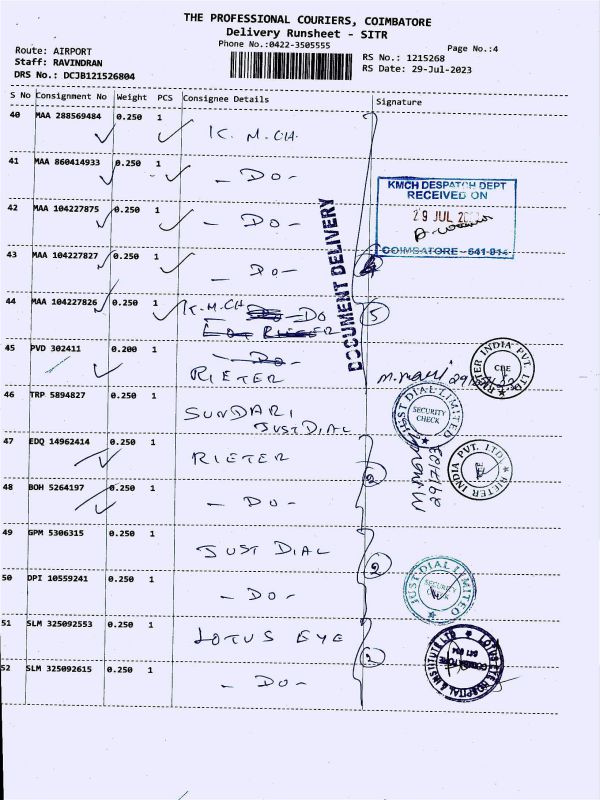 THE PROFESSIONAL COURIERS, COIMBATORE
Delivery Runsheet - SITR
Phone No.:0422-3505555
Page No.:4
Route: AIRPORT
RS No.: 1215268
Staff: RAVINDRAN
RS Date: 29-Jul-2023
DRS No.: DCJB121526804
S No Consignment No Weight PCS Consignee Details Signature
40 MAA 288569484 0.250 1 K. M. CH.
41 MAA 860414933 0.250 1 - DO -
KMCH DESPATCH DEPT
RECEIVED ON
29 JUL
COIMBATORE - 641 014
DOCUMENT DELIVERY
42 MAA 104227875 0.250 1 - DO -
43 MAA 104227827 0.250 1 - DO -
44 MAA 104227826 0.250 1 K.M.CH DO
5
45 PVD 302411 0.200 1 - DO -
RIETER
RIETER INDIA PVT. LTD.
CBE
46 TRP 5894827 0.250 1 SUNDARI
JUST DIAL
JUST DIAL LIMITED
SECURITY
CHECK
47 EDQ 14962414 0.250 1 RIETER
RIETER INDIA PVT. LTD.
48 BOH 5264197 0.250 1 - DO -
49 GPM 5306315 0.250 1 JUST DIAL
2
50 DPI 10559241 0.250 1 - DO -
JUST DIAL LIMITED
SECURITY
51 SLM 325092553 0.250 1 LOTUS EYE
LOTUS EYE HOSPITAL & INSTITUTE LTD
COIMBATORE
641 014
52 SLM 325092615 0.250 1 - DO -